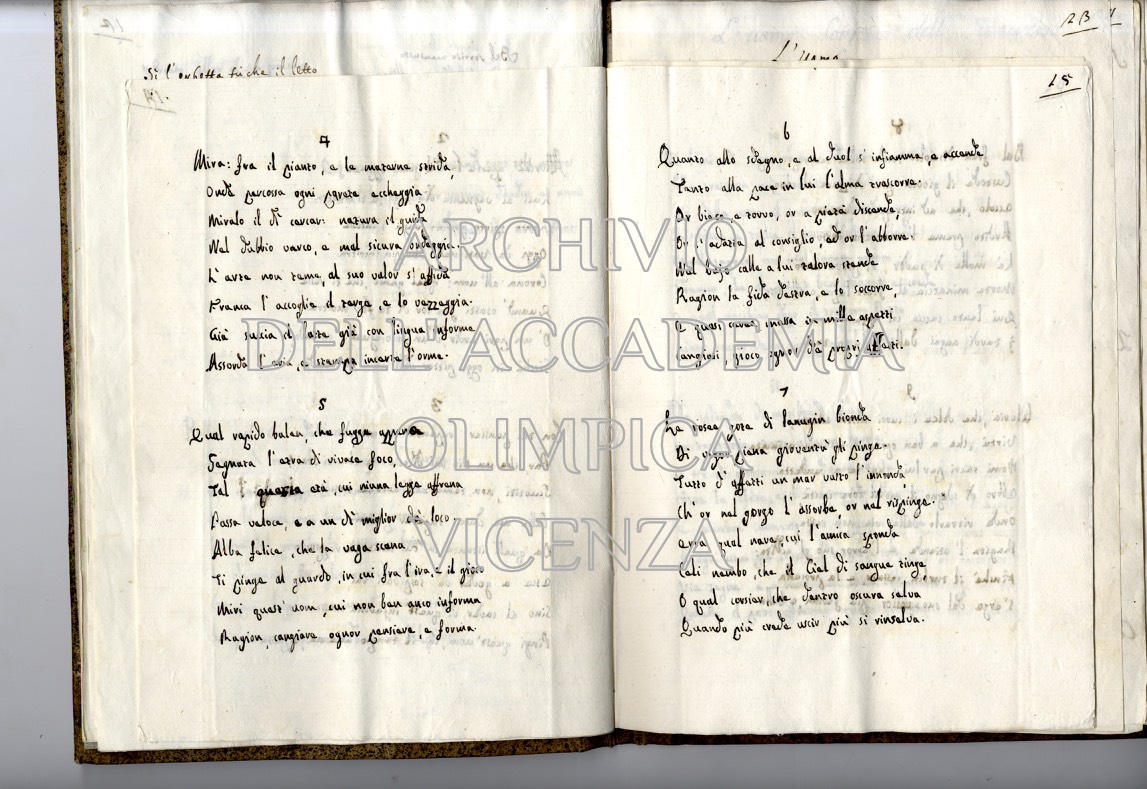 Si l'exhotta fin che il letto
14.
4
Mira: fra il pianto, e le materne strida,
Onde percossa ogni parete eccheggia
Miralo il dì cercar: natura il guida
Nel dubbio varco, e mal sicura ondeggia.
L'arte non teme, al suo valor s'affida
Franca l'accoglie il terge, e lo vezzeggia.
Già succia il latte già con lingua informe
Assorda l'aria, e stampa incerte l'orme.
5
Qual rapido balen, che fugge appare
Segnata l'etra di vivace foco,
Tal questa età, cui niuna legge affrena
Passa veloce, e a un dì miglior dà loco
Alba felice, che la vaga scena
Ti pinge al guardo, in cui fra l'ira, e il gioco
Miri quest'uom, cui non ben anco informa
Ragion, cangiare ognor pensiere, e forma.
2B
L'uomo
15
6
Quanto allo sdegno, e al duol s'infiamma, e accende
Tanto alla pace in lui l'alma trascorre:
Or bieco, e torvo, or a pietà discende,
Or s'adatta al consiglio, ed or l'abborre.
Nel calle a lui talora stende
Ragion la fida destra, e lo soccorre,
E quasi cera impressa in mille aspetti
Cangiasi, gioco ognor dè proprj affetti.
7
Le rosee gote di lanugin bionda
Di vezzi piena gioventù gli pinge.
Tutto d'affetti un mar vasto l'innonda,
Ch'or nel gorgo l'assorbe, or nel rispinge.
Erra qual nave, cui l'amica sponda
Celi nembo, che il Ciel di sangue tinge
O qual corsier, che dentro oscura selva
Quando più crede uscir più si rinselva.
ARCHIVIO
DELL'ACCADEMIA
OLIMPICA
VICENZA